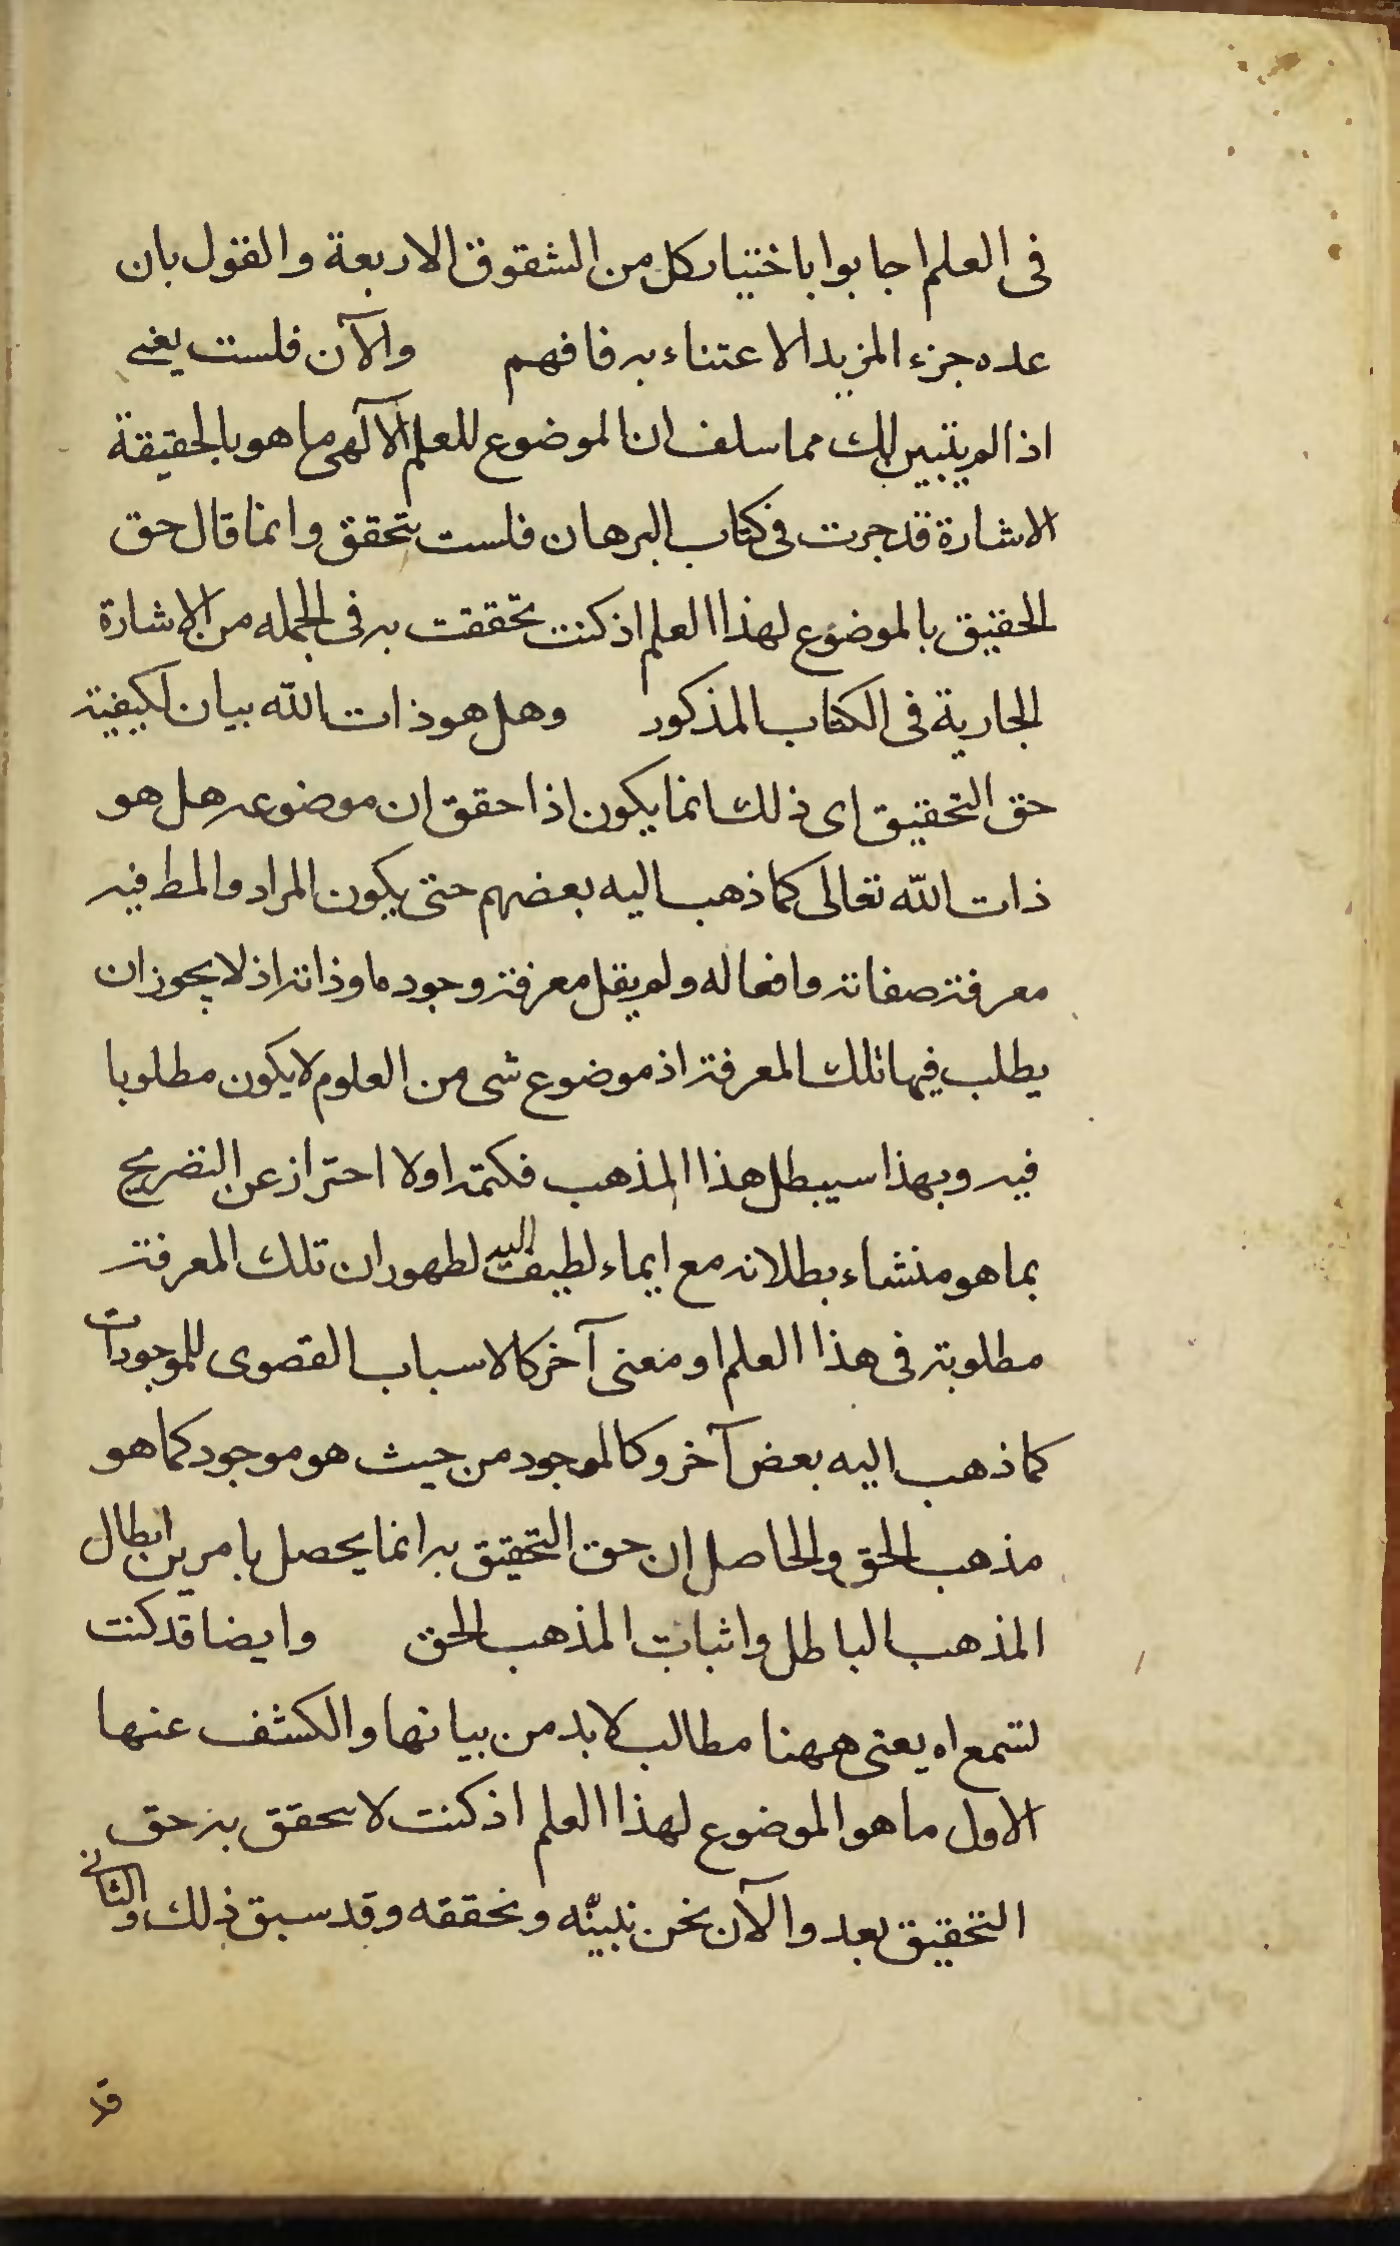 فى العلم اجابوا باختيار كل من الشقوق الاربعة والقول بان
عده جزء المزيد الاعتناء به فافهم والآن فلست يعنى
اذا لم يتبين لك مما سلف ان الموضوع للعلم الآلهى ما هو بالحقيقة
الاشارة قد جرت فى كتاب البرهان فلست تتحقق وانما قال حق
الحقيق بالموضوع لهذا العلم اذ كنت تحققت به فى الجمله من الاشارة
الجارية فى الكتاب المذكور وهل هو ذات الله بيان لكيفية
حق التحقيق اى ذلك انما يكون اذا حقق ان موضوعه هل هو
ذات الله تعالى كما ذهب اليه بعضهم حتى يكون المراد والمط فيه
معرفة صفاته وافعاله ولم يقل معرفة وجوده او ذاته اذ لا يجوز ان
يطلب فيها تلك المعرفة اذ موضوع شى من العلوم لا يكون مطلوبا
فيه وبهذا سيبطل هذا المذهب فكتمه اولا احتراز عن التصريح
بما هو منشاء بطلانه مع ايماء لطيف اليه لظهور ان تلك المعرفة
مطلوبة فى هذا العلم او معنى آخر كالاسباب القصوى للموجودات
كما ذهب اليه بعض آخر وكالموجود من حيث هو موجود كما هو
مذهب الحق والحاصل ان حق التحقيق به انما يحصل بامرين ابطال
المذهب الباطل واثبات المذهب الحق وايضا قد كنت
لتسمع اه يعنى ههنا مطالب لابد من بيانها والكشف عنها
الاول ما هو الموضوع لهذا العلم اذ كنت لا تحقق به حق
التحقيق بعد والآن نحن نبينّه ونحققه وقد سبق ذلك والثانى
قد